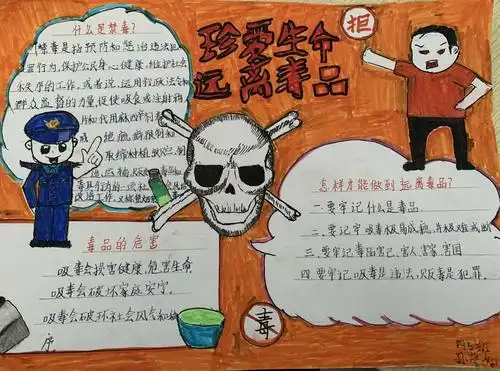 珍爱生命
远离毒品
拒
什么是禁毒?
禁毒是指预防和惩治违法犯
罪行为,保护公民身心健康,维护社会
秩序的工作,或者说,运用行政法令和
群众监督的力量,促使吸食或注射鸦
片和代用麻
戒绝
取缔种植
毒品的危害
吸毒会损害健康,危害生命
吸毒会破坏家庭安宁。
吸毒会破坏社会风气和秩
序。
怎样才能做到远离毒品?
一.要牢记什么是毒品
二.要记牢吸毒极易成瘾,并极难戒断
三.要牢记毒品害己、害人、害家、害国
四.要牢记吸毒是违法,贩毒是犯罪。
毒